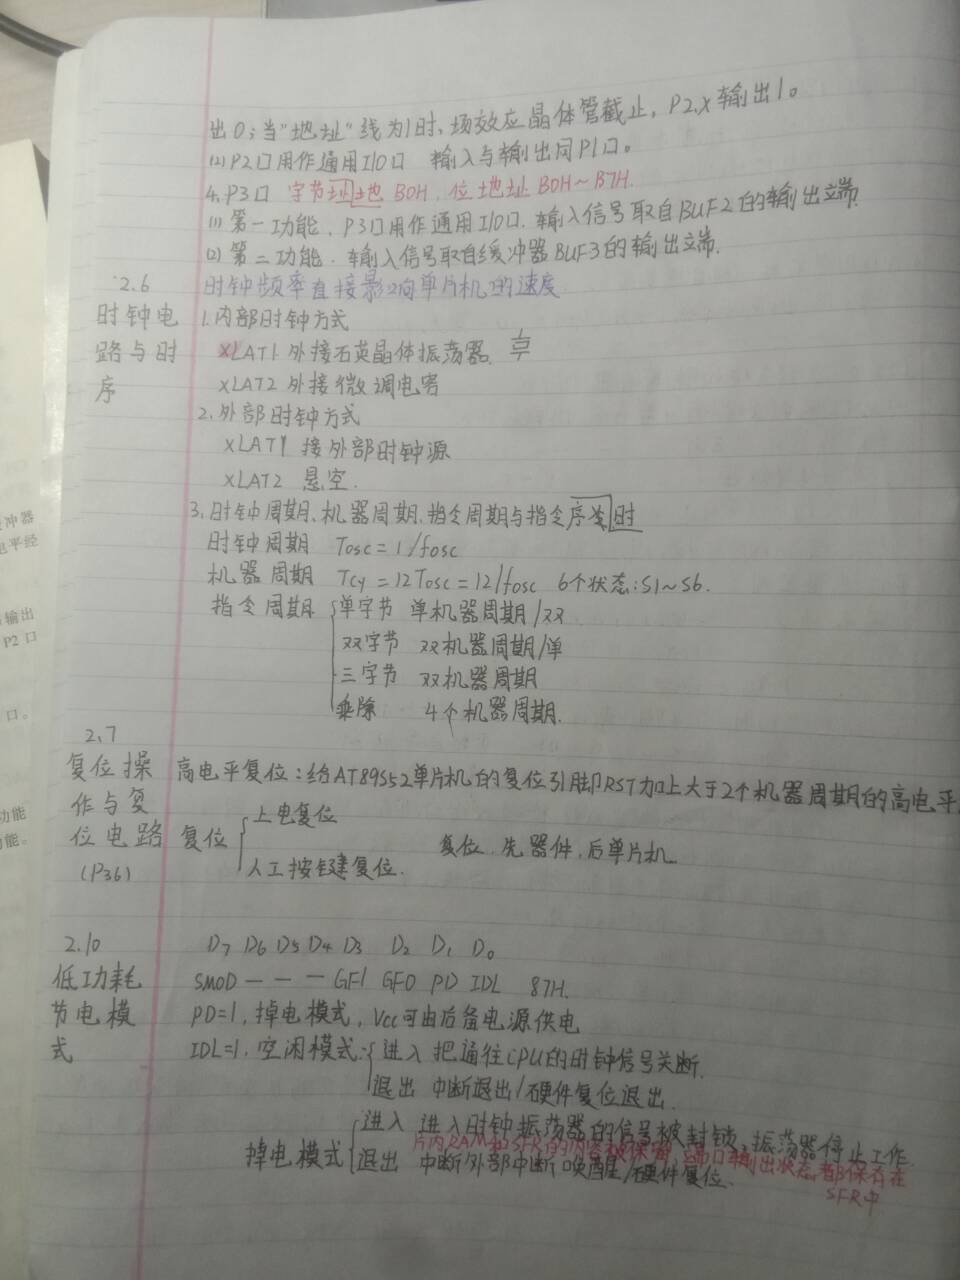 出0;当"地址"线为1时、场效应晶体管截止，P2.X输出1。
(2) P2口用作通用I/O口 输入与输出同P1口。
4. P3口 字节址地 B0H, 位地址 B0H~B7H.
(1) 第一功能、P3口用作通用I/O口. 输入信号取自BUF2的输出端.
(2) 第二功能. 输入信号取自缓冲器BUF3的输出端.
2.6 时钟频率直接影响单片机的速度
时钟电 1.内部时钟方式
路与时 XLAT1外接石英晶体振荡器.
序 XLAT2外接微调电容
2.外部时钟方式
XLAT1 接外部时钟源
XLAT2 悬空.
3.时钟周期、机器周期、指令周期与指令序令时
时钟周期 Tosc=1/fosc
机器周期 Tcy=12Tosc=12/fosc 6个状态:S1~S6.
指令周期 单字节 单机器周期/双
双字节 双机器周期/单
三字节 双机器周期
乘除 4个机器周期.
2.7
复位操 高电平复位:给AT89S52单片机的复位引脚RST加上大于2个机器周期的高电平
作与复 上电复位
位电路 复位 复位.先器件,后单片机
(P36) 人工按键复位.
2.10 D7 D6 D5 D4 D3 D2 D1 D0
低功耗 SMOD — — — GF1 GF0 PD IDL 87H.
节电模 PD=1,掉电模式,Vcc可由后备电源供电
式 IDL=1,空闲模式: 进入 把通往CPU的时钟信号关断.
退出 中断退出/硬件复位退出.
进入 进入时钟振荡器的信号被封锁,振荡器停止工作.
片内RAM和SFR的内容被保留,端口输出状态都保存在
掉电模式 退出 中断外部中断唤醒/硬件复位.
SFR中